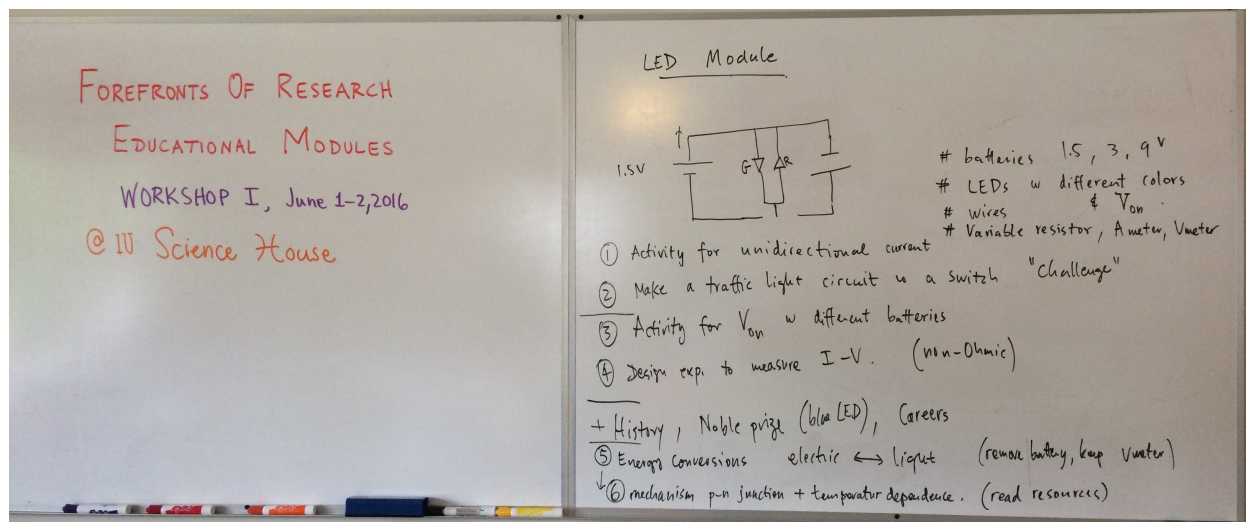 FOREFRONTS OF RESEARCH
EDUCATIONAL MODULES
WORKSHOP I, June 1-2, 2016
@ IU Science House
LED Module
1.5V
G
R
# batteries 1.5, 3, 9 V
# LEDs w different colors
& Von
# wires
# Variable resistor, Ameter, Vmeter
① Activity for unidirectional current
② Make a traffic light circuit w a switch "challenge"
③ Activity for Von w different batteries
④ Design exp. to measure I-V. (non-Ohmic)
+ History, Noble prize (blue LED), Careers
⑤ Energy conversions electric ↔ light (remove battery, keep Vmeter)
↓ ⑥ mechanism p-n junction + temperatur dependence. (read resources)